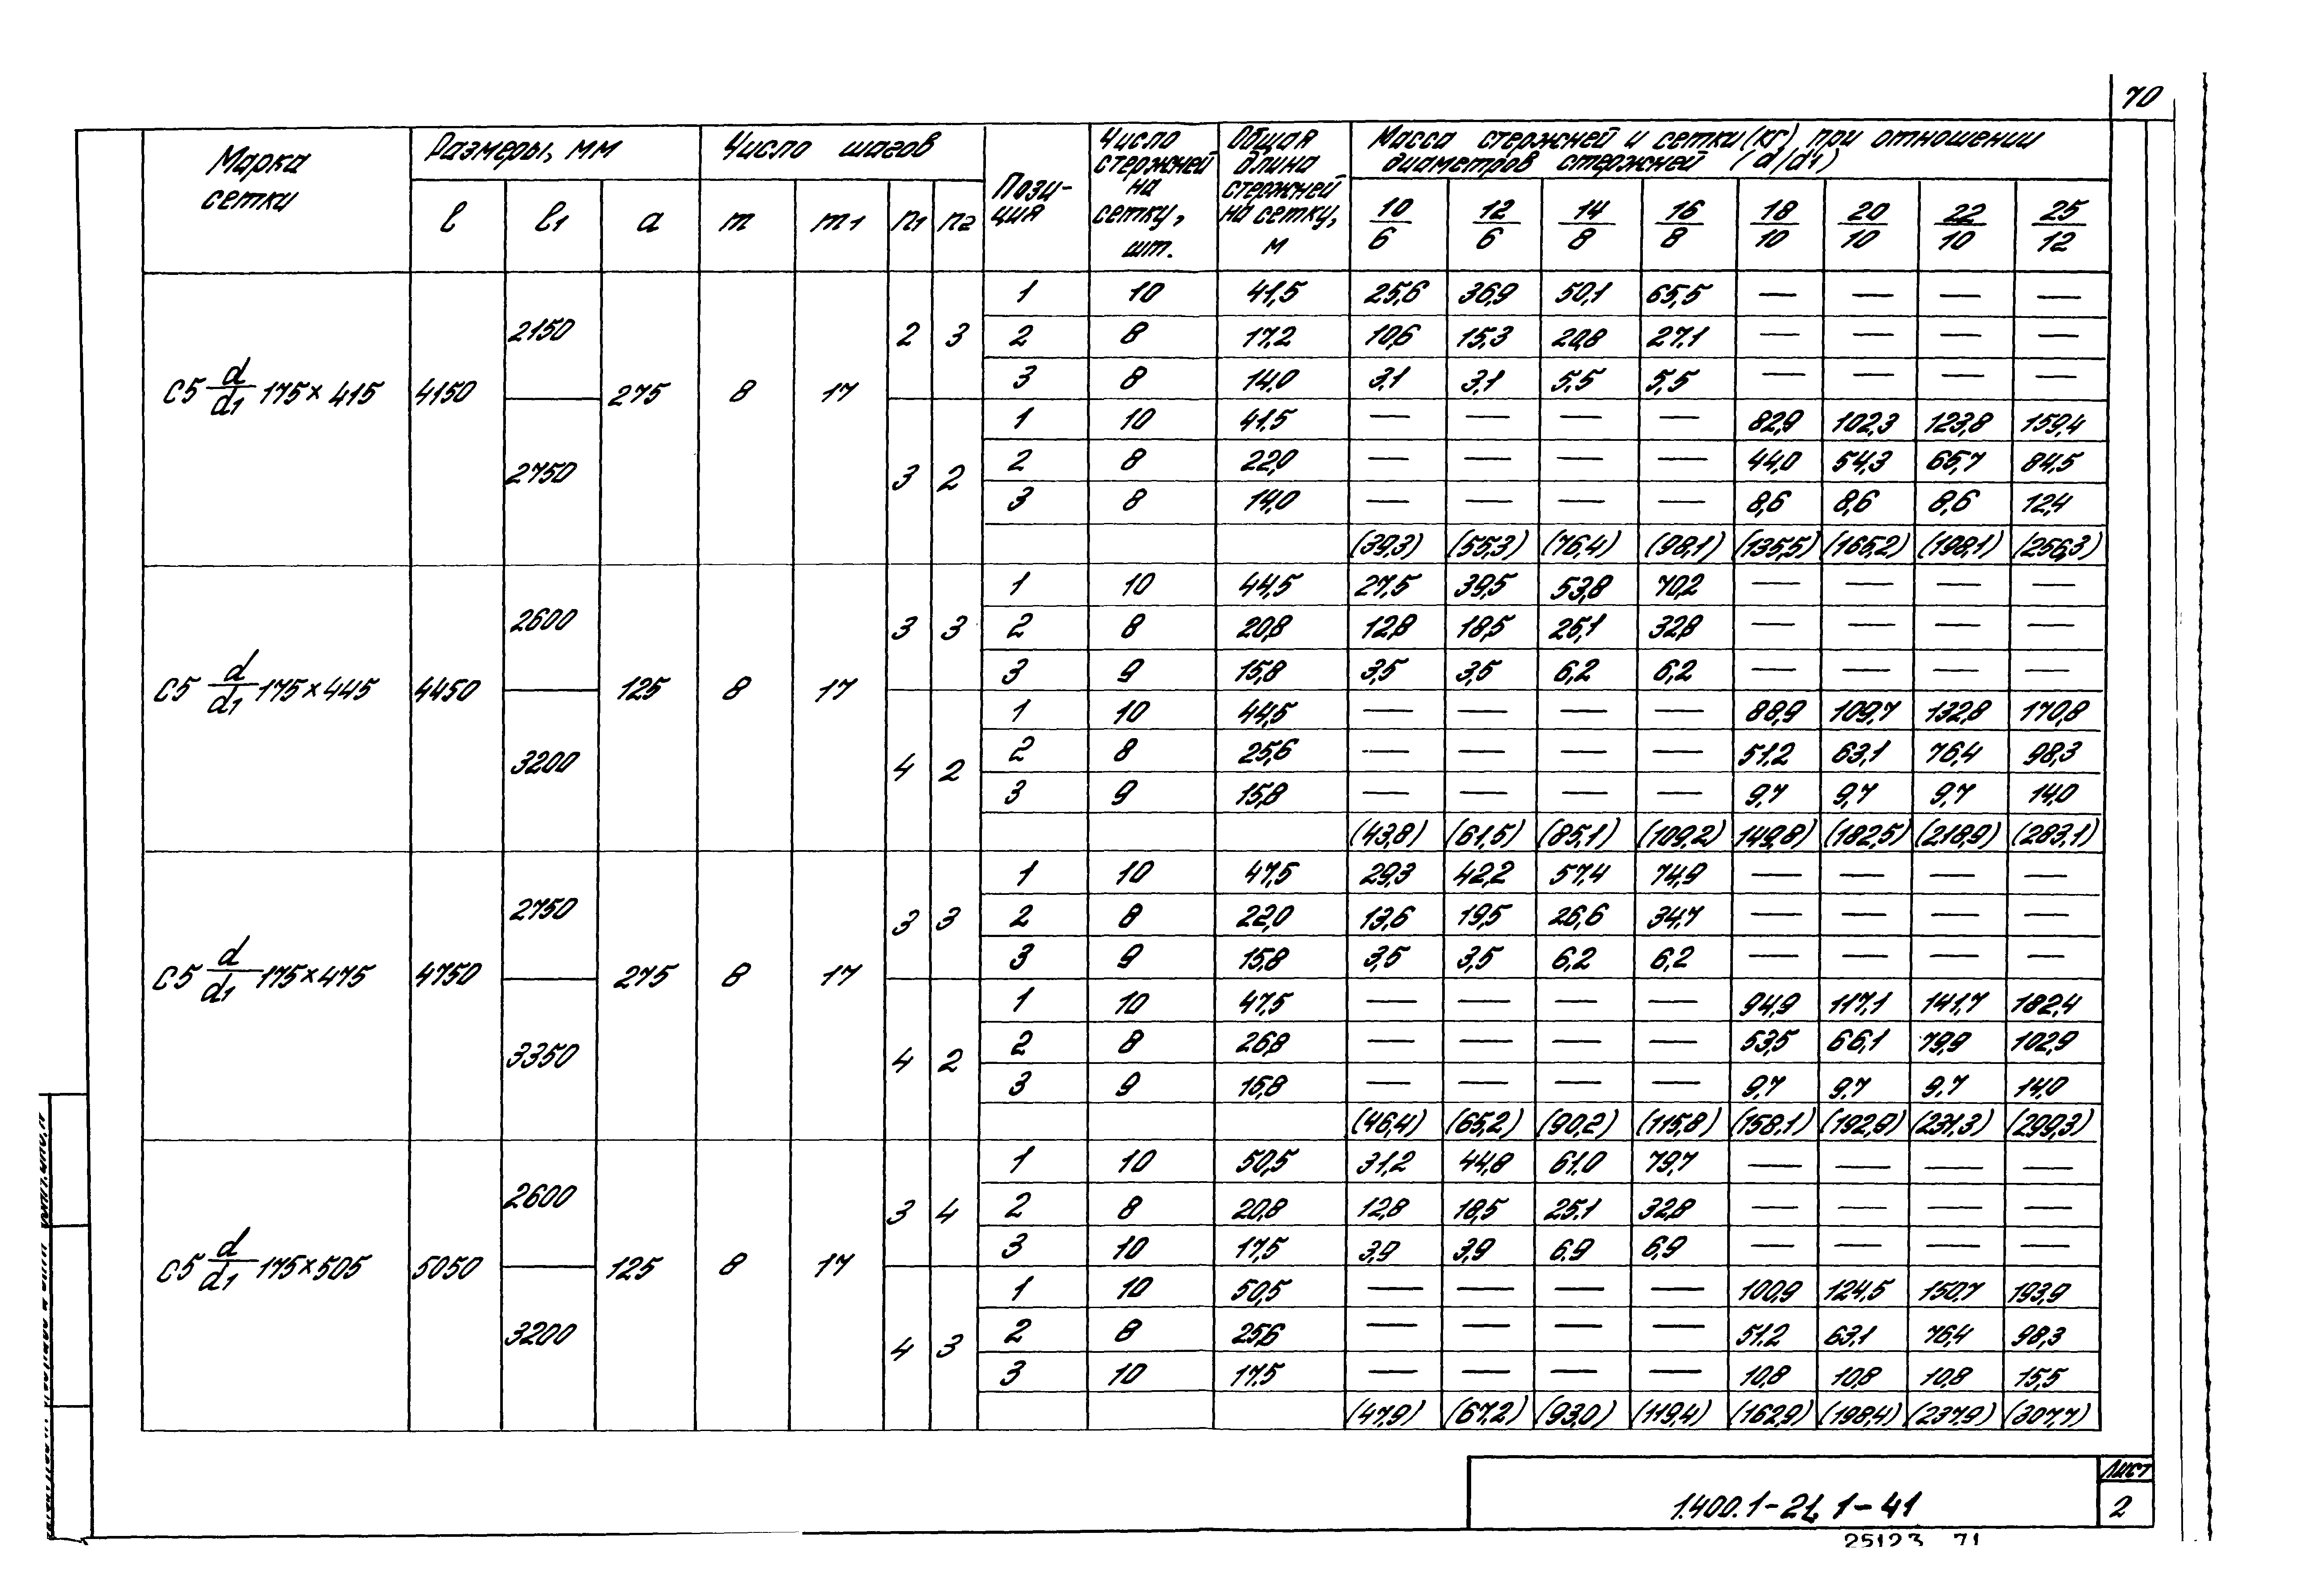 70
Марка сетки | Размеры, мм | Число шагов | Пози-ция | Число стержней на сетку, шт. | Общая длина стержней на сетку, м | Масса стержней и сетки (кг) при отношении диаметров стержней (d/d1)
l | l1 | a | m | m1 | n1 | n2 | 10/6 | 12/6 | 14/8 | 16/8 | 18/10 | 20/10 | 22/10 | 25/12
С5 d/d1 175×415 | 4150 | 2150 | 275 | 8 | 17 | 2 | 3
1 | 10 | 41,5 | 25,6 | 36,9 | 50,1 | 65,5 | — | — | — | —
2 | 8 | 17,2 | 10,6 | 15,3 | 20,8 | 27,1 | — | — | — | —
3 | 8 | 14,0 | 3,1 | 3,1 | 5,5 | 5,5 | — | — | — | —
2750 | 3 | 2
1 | 10 | 41,5 | — | — | — | — | 82,9 | 102,3 | 123,8 | 159,4
2 | 8 | 22,0 | — | — | — | — | 44,0 | 54,3 | 65,7 | 84,5
3 | 8 | 14,0 | — | — | — | — | 8,6 | 8,6 | 8,6 | 12,4
(39,3) | (55,3) | (76,4) | (98,1) | (135,5) | (165,2) | (198,1) | (256,3)
С5 d/d1 175×445 | 4450 | 2600 | 125 | 8 | 17 | 3 | 3
1 | 10 | 44,5 | 27,5 | 39,5 | 53,8 | 70,2 | — | — | — | —
2 | 8 | 20,8 | 12,8 | 18,5 | 25,1 | 32,8 | — | — | — | —
3 | 9 | 15,8 | 3,5 | 3,5 | 6,2 | 6,2 | — | — | — | —
3200 | 4 | 2
1 | 10 | 44,5 | — | — | — | — | 88,9 | 109,7 | 132,8 | 170,8
2 | 8 | 25,6 | — | — | — | — | 51,2 | 63,1 | 76,4 | 98,3
3 | 9 | 15,8 | — | — | — | — | 9,7 | 9,7 | 9,7 | 14,0
(43,8) | (61,5) | (85,1) | (109,2) | 149,8) | (182,5) | (218,9) | (283,1)
С5 d/d1 175×475 | 4750 | 2750 | 275 | 8 | 17 | 3 | 3
1 | 10 | 47,5 | 29,3 | 42,2 | 57,4 | 74,9 | — | — | — | —
2 | 8 | 22,0 | 13,6 | 19,5 | 26,6 | 34,7 | — | — | — | —
3 | 9 | 15,8 | 3,5 | 3,5 | 6,2 | 6,2 | — | — | — | —
3350 | 4 | 2
1 | 10 | 47,5 | — | — | — | — | 94,9 | 117,1 | 141,7 | 182,4
2 | 8 | 26,8 | — | — | — | — | 53,5 | 66,1 | 79,9 | 102,9
3 | 9 | 15,8 | — | — | — | — | 9,7 | 9,7 | 9,7 | 14,0
(46,4) | (65,2) | (90,2) | (115,8) | (158,1) | (192,9) | (231,3) | (299,3)
С5 d/d1 175×505 | 5050 | 2600 | 125 | 8 | 17 | 3 | 4
1 | 10 | 50,5 | 31,2 | 44,8 | 61.0 | 79,7 | — | — | — | —
2 | 8 | 20,8 | 12,8 | 18,5 | 25.1 | 32,8 | — | — | — | —
3 | 10 | 17,5 | 3,9 | 3,9 | 6.9 | 6,9 | — | — | — | —
3200 | 4 | 3
1 | 10 | 50,5 | — | — | — | — | 100,9 | 124,5 | 150,7 | 193,9
2 | 8 | 25,6 | — | — | — | — | 51,2 | 63,1 | 76,4 | 98,3
3 | 10 | 17.5 | — | — | — | — | 10,8 | 10,8 | 10,8 | 15,5
(47,9) | (67,2) | (93,0) | (119,4) | (162,9) | (198,4) | (237,9) | (307,7)
1.400.1-21, 1-41
Лист
2
25123 71